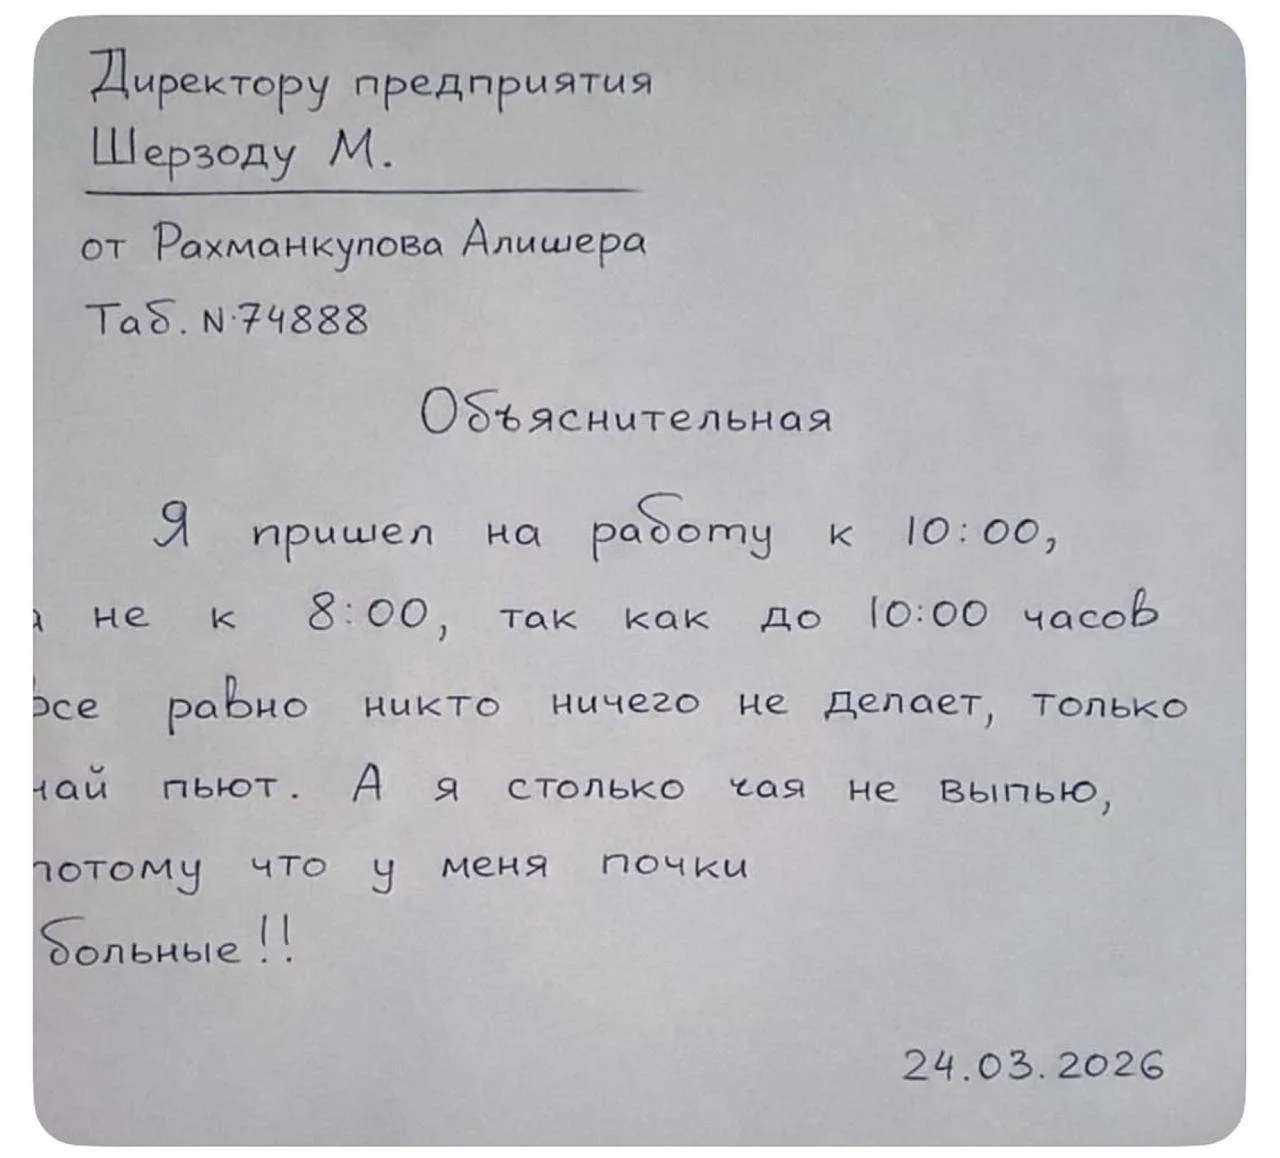 Директору предприятия
Шерзоду М.
от Рахманкулова Алишера
Таб. N.74888
Объяснительная
Я пришел на работу к 10:00,
а не к 8:00, так как до 10:00 часов
все равно никто ничего не делает, только
чай пьют. А я столько чая не выпью,
потому что у меня почки
больные!!
24.03.2026